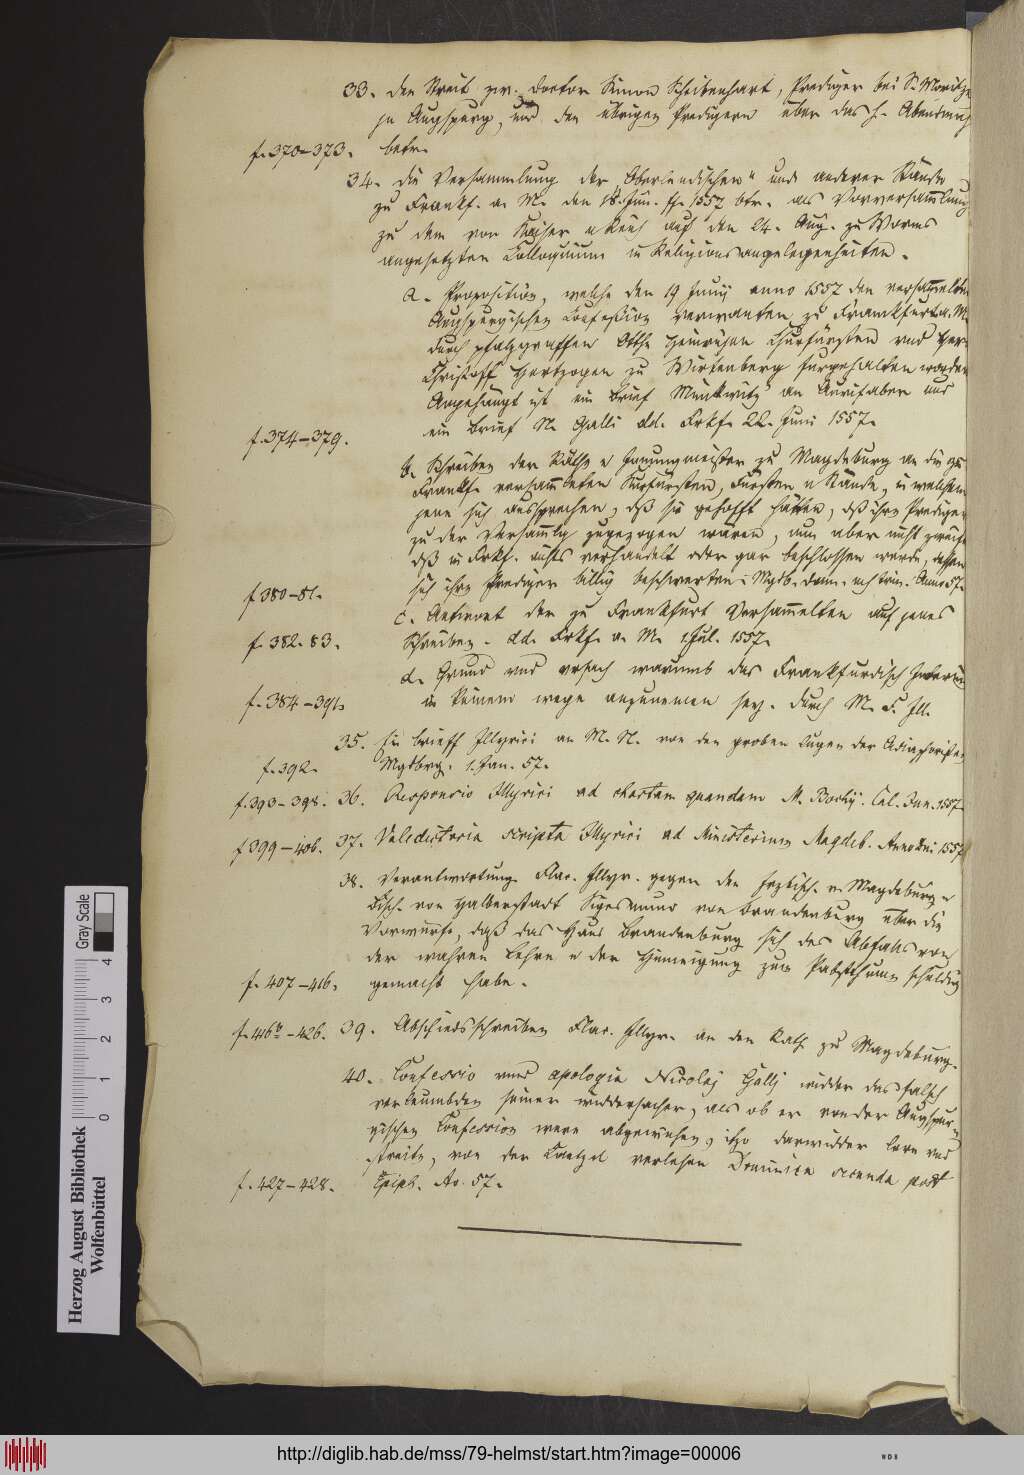 33. Den Streit zw. Doctor Simon Scheibenhart, Prediger bei S. Moritz
zu Augspurg, und den übrigen Predigern über das h. Abendmahl
f. 370–373. betr.
34. Die Versammlung der Oberländischen u. anderer Stände
zu Frankf. a. M. den 18. Jun. ff. 1557 btr. als Vorversammlung
zu dem von Kaiser u Reich auf den 24. Aug. zu Worms
angesetzten Colloquium in Religionsangelegenheiten.
a. Proposition, welche den 19 Junij anno 1557 den versammelten
Augspurgischen Confession verwanten zu Franckfurt a. M.
durch pfalzgraffen Otth Heinrichen Churfürsten vnd Her
Christoff Hertzogen zu Wirtenberg furgehalten worden
Angehängt ist ein Brief Minkwitz an Aurifaber und
ein Brief N. Galli dd. Frkf. 22. Juni 1557.
f. 374–379.
b. Schreiben der Räthe u Innungmeister zu Magdeburg an die zu
Frankf. versammleten Kurfürsten, Fürsten u Stände, in welchem
jene sich aussprechen, dß sie gehofft hätten, dß ihre Prediger
zu der Versammlg zugezogen wären, nun aber nicht
dß in Frkf. verhandelt oder gar beschlossen werde, dessen
sich ihre Prediger billig beschwerten. Mgdb. Anno 57.
f 380–81.
c. Antwort der zu Franckfurt Versammelten auf jenes
f. 382. 83. Schreiben. dd. Frkf. a. M. 1 Jul. 1557.
d. Grund vnd vrsach warumb das Franckfurdisch Interim
f. 384–391. in keinem wege anzunemen sey. durch M. F. Ill.
35. Ein brieff Illyrici an M. N. von den groben lugen der Adiaphoristen
f. 392. Mgdbrg. 1. Jan. 57.
f. 393–398. 36. Responsio Illyrici ad chartam quandam M. Cal. Jan. 1557
f 399–406. 37. Valedictoria scripta Illyrici ad Ministerium Magdeb. Anno Dni 1557
38. Verantwortung Flac. Illyr. gegen den Erzbisch. v. Magdeburg u
Bisch. von Halberstadt Sigesmund von Brandenburg über die
Vorwürfe, daß das Haus Brandenburg sich des Abfalls von
der wahren Lehre u der Hinneigung zum Pabstthumm schuldig
f. 407–416. gemacht habe.
f. 416b–426. 39. Abschiedsschreiben Flac. Illyr. an den Rath zu Magdeburg.
40. Confessio vnnd apologia Nicolaj Gallj widder das falsch
verleumbden seiner widdersacher, als ob er von der Augspur
gischen Confession were abgewichen, itzo darwidder lere vnd
streite, von der Cantzel verlesen Dominica secunda post
f. 427–428. Epiph. Ao. 57.
Herzog August Bibliothek
Wolfenbüttel
0 1 2 3 4
Gray Scale
http://diglib.hab.de/mss/79-helmst/start.htm?image=00006
WDB